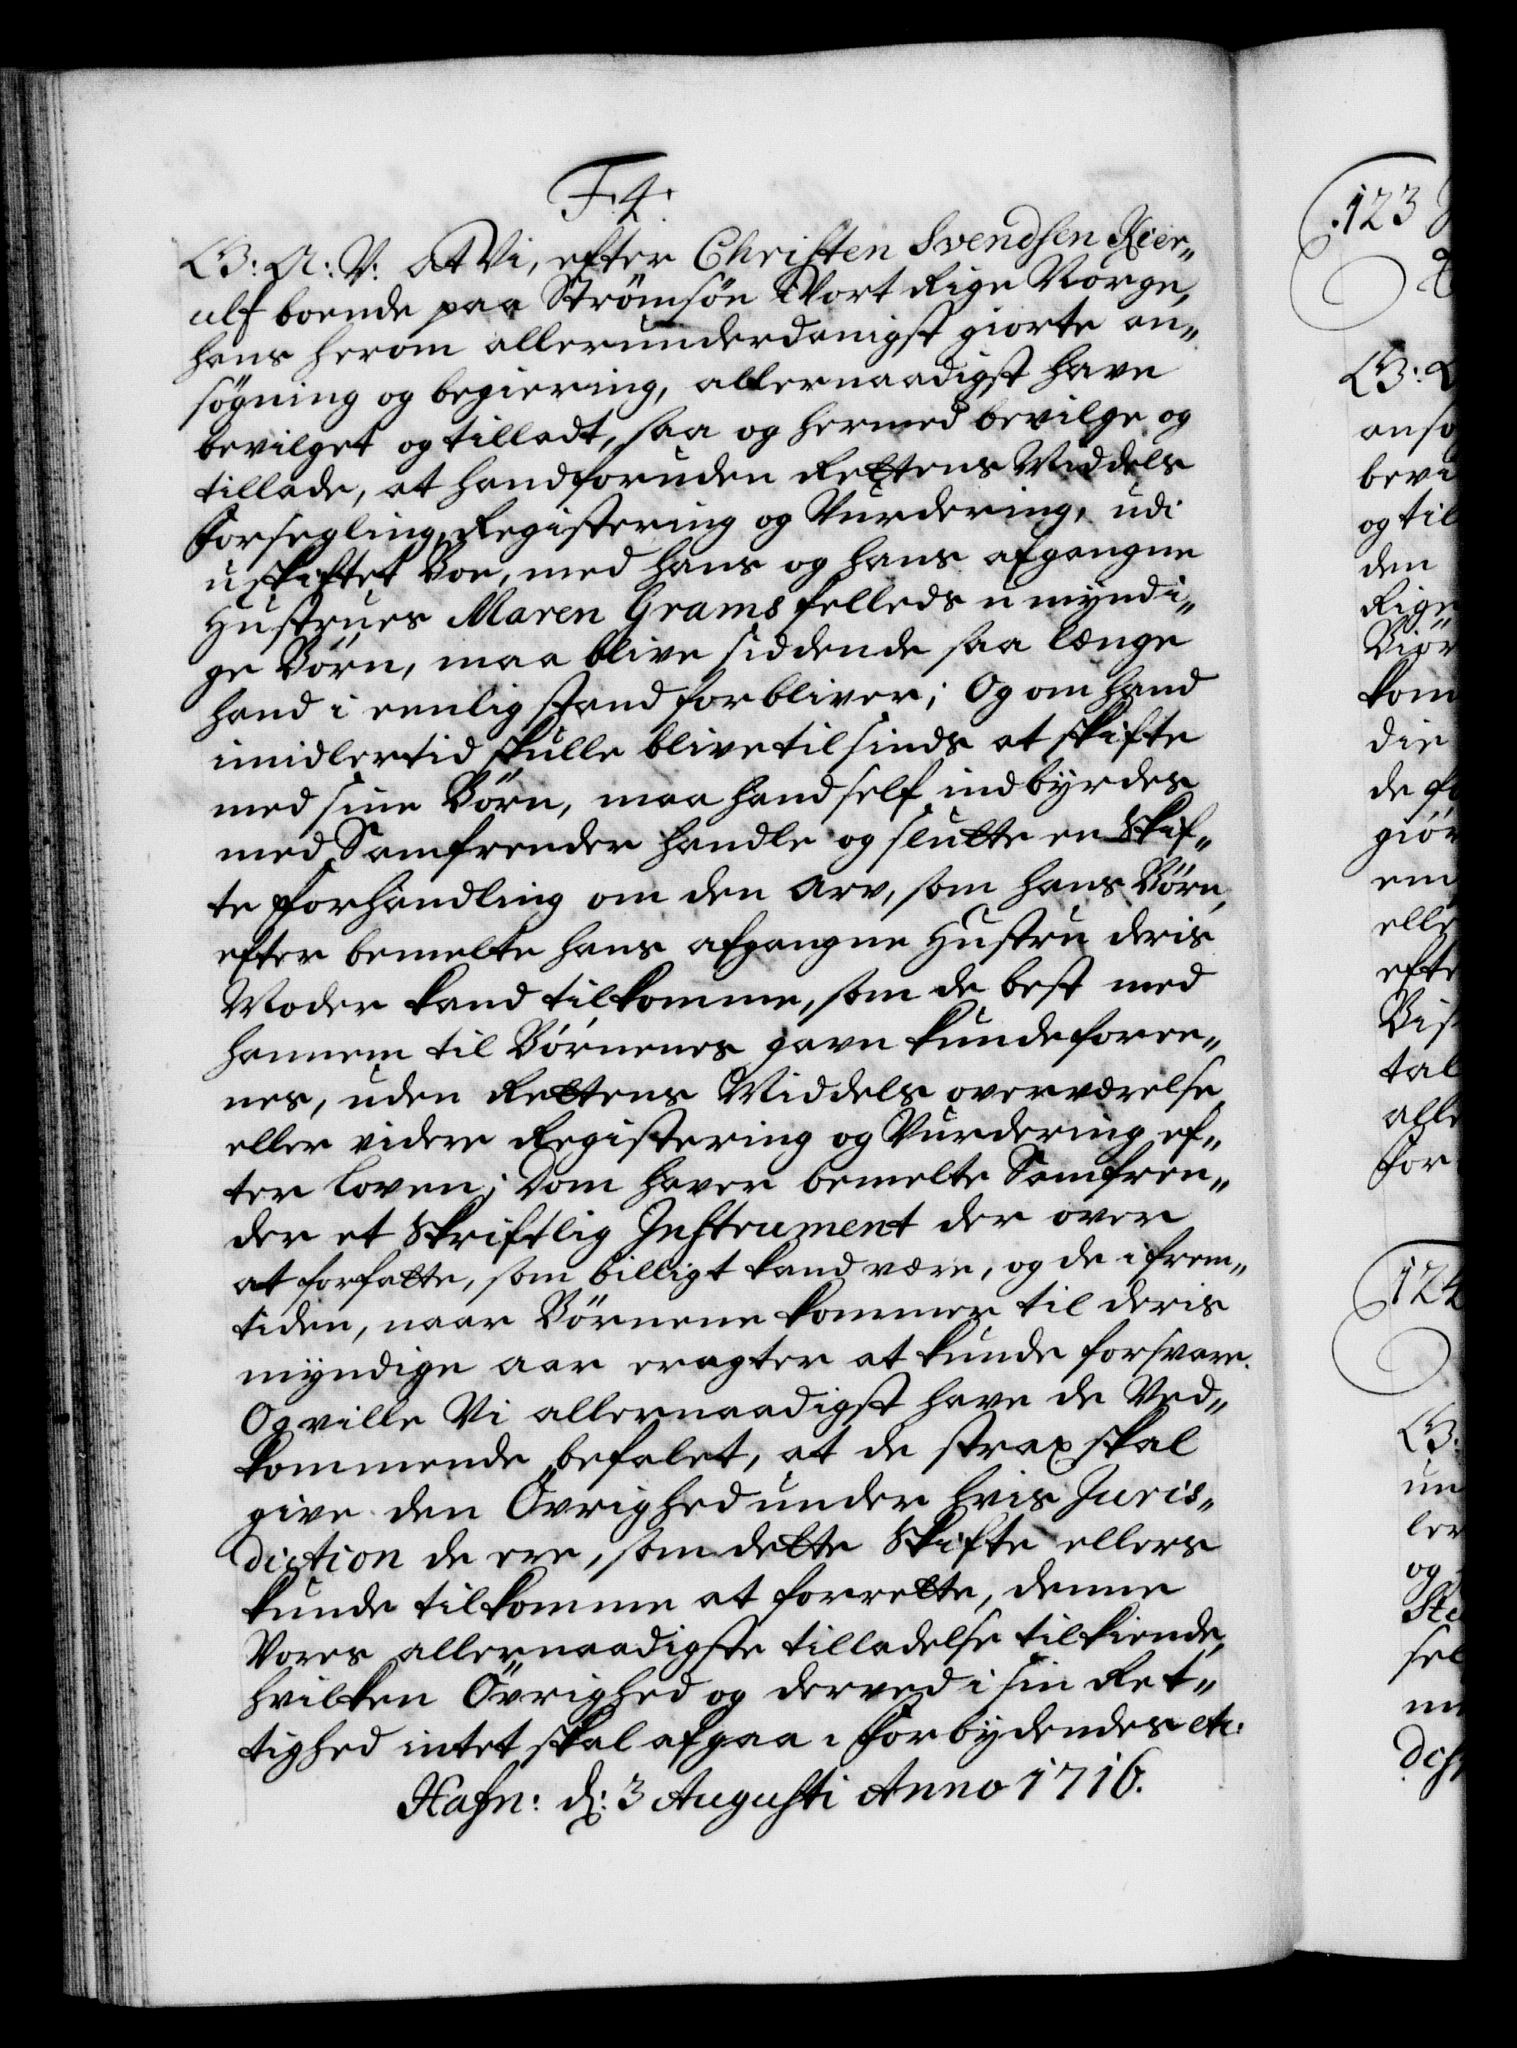 F. 4.
G: A: V: At Vi, efter Christen Svendsen Kier„
ulf boende paa Strømsøn i Vort Rige Norge,
hans herom allerunderdanigst giorte an„
søgning og begiering, allernaadigst have
bevilget og tilladt, saa og hermed bevilge og
tillade, at hand foruden Rettens Middels
Forsegling, Registering og Vurdering, udi
uskiftet Boe, med hans og hans afgangne
Hustrues Maren Grams felleds umyndi„
ge Börn, maa blive siddende saa længe
hand i eenlig stand forbliver; Og om hand
imidlertid skulle blive til sinds at skifte
med sine Börn, maa hand self indbyrdes
med Samfrender handle og slutte en Skif„
te Forhandling om den Arv, som hans Börn,
efter bemelte hans afgangne Hustru deris
Moder kand tilkomme, som de best med
hannem til Börnenes gavn kunde foree„
nes, uden Rettens Middels overværelse
eller videre Registering og Vurdering ef„
ter Loven; Dom haver bemelte Samfren„
der et Skriftlig Instrument der over
at forfatte, som billigt kand være, og de i frem„
tiden, naar Börnene kommer til deris
myndige aar eragter at kunde forsvare.
Og ville Vi allernaadigst have de Ved„
kommende befalet, at de strax skal
give den Övrighed under hvis Juris„
diction de ere, som dette Skifte ellers
kunde tilkomme at forrette, denne
Vores allernaadigste tilladelse tilkiende,
hvilken Övrighed og derved i sin Ret„
tighed intet skal afgaa. Forbydendes etc:
Hafn: d: 3 Augusti Anno 1716.
123
124